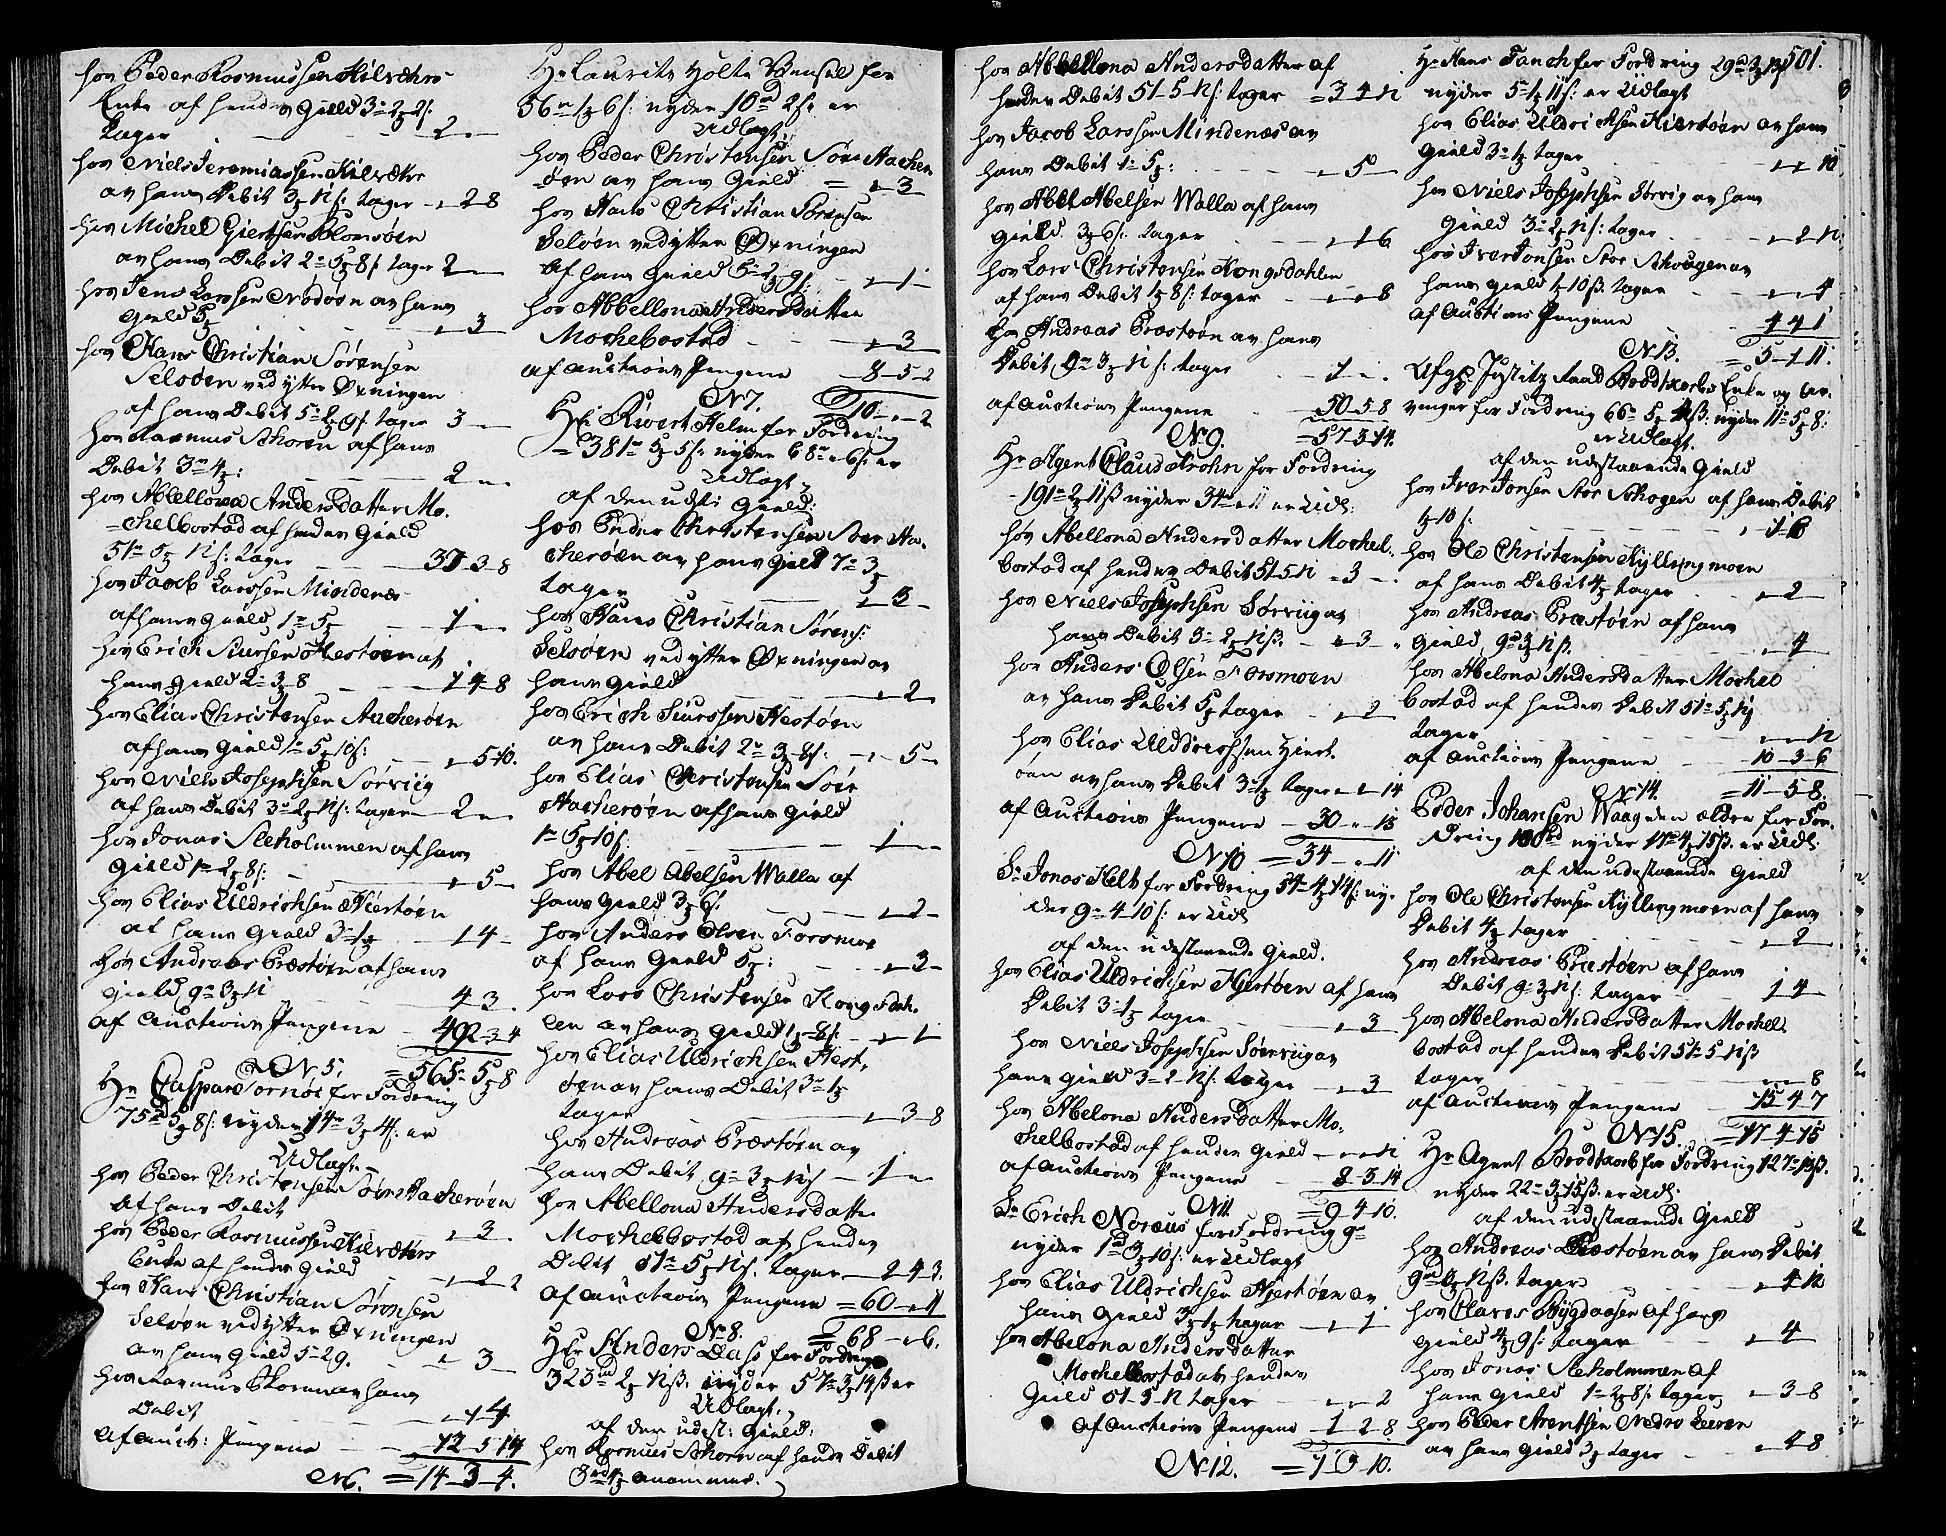 hos Peder Rasmussen Kilvæhrs
Enke af hendes Gield 3 - 2 - 2 s:
tager 2 -
hos Niels Jeremiassen Kilvæhr
av hans Debit 3 N s: tager - 2 8
hos Michel Giertsen Blomsøen
av hans Debit 2 - 5 - 8 s tager 2 -
hos Jens Larssen Nodøen av hans
Gield 5 - 3 -
hos Hans Christian Sørensen
Selsøen ved ytter Øxningen
af hans Debit 5 - 2 - 9 s tager 3 -
hos Rasmus Skoren af hans
Debit 3 - 4 : 2 -
hos Abellona Andersdatter Mo-
chelbostad af hendes Gield
51 - 5 - N s: tager 37 - 3 - 8
hos Jacob Larssen Mindenæs
af hans Gield 1 - 5 1 -
hos Erich Siursen Hestøen af
hans Gield 2 - 3 - 8 1 4 - 8
hos Elias Christensen Aacherøen
af hans Gield 1 - 5 - 10 s: 5 - 10.
hos Niels Josephsen Sørviig
af hans Debit 3 - 2 - N s: tager - 2 -
hos Jonas Seeholmmen af hans
Gield 1 - 2 - 8 s: - 5 -
hos Elias Uldrichsen Hiertøen
af hans Gield 3 - 1 1 4 -
hos Andreas Præstøen af hans
Gield 9 - 3 - N 4 3.
af Auctions Pengene - 492 - 3 4
N 5. = 565 - 5 - 8
Hr Caspare Tornøe for Fordring
75 - 5 - 8 s: nyder 14 - 3 - 4 s: er
Udlagt.
hos Peder Christensen Søer Aacherøen
af hans Debit - 3 -
hos Peder Rasmussen Kilvæhrs
Enke af hendes Gield - 2 2
hos Hans Christian Sørensen
Selsøen ved ytter Øxningen
av hans Gield 5 - 29. - 3 -
hos Rasmus Skoren av hans
Debit - 1 4
af Auct: Pengene - 12 - 5 14
N 6. = 14 - 3 - 4.
Hr Lauritz Holte Bensel for
56 - 1 - 6 s: nyder 10 2 s: er
Udlagt.
hos Peder Christensen Søer Aacher-
øen av hans Gield = - 3 -
hos Hans Christian Sørensen
Selsøen ved ytter Øxningen
af hans Gield 5 - 2 - 9 s: - 1 -
hos Abbellona Andersdatter
Mochebostad - 3 -
af Auctions Pengene - 8 - 5 - 2
N 7. 10 - - 2
Hr Rivert Helm for Fordring
= 381 - 5 - 5 s: nyder 68 - 6 s: er
Udlagt
af den udst: Gield:
hos Peder Christensen Søer Aa-
cherøen av hans Gield 7 - 3
tager - 3 -
hos Hans Christian Sørens:
Selsøen ved ytter Øxningen av
hans Gield - 2 -
hos Erich Siurssen Hestøen
av hans Debit 2 - 3 - 8 s: - 5 -
hos Elias Christensen Søer
Aacherøen af hans Gield
1 - 5 - 10 s: 1 -
hos Abel Abelsen Walla af
hans Gield 3 - 6 s: - 2 -
hos Anders Olsen Forsmoe
af hans Gield 5 : - 3 -
hos Lars Christensen Kongsdah-
len av hans Gield 1 - 8 s: - 1
hos Elias Uldrichsen Hest-
øen av hans Debit 3 - 1
tager - 3 - 8
hos Andreas Præstøen av
hans Debit 9 - 3 - N s - 1 -
hos Abellona Andersdatter
Mochelbostad af hendes
Debit 51 - 5 - N s. tager - 2 4 3.
af Auctions Pengene = 60 - - 11
N 8. = 68 - - 6.
Hr Anders Dass for Fordring
323 2 - N ß: nyder 57 - 3 - 14 ß er
Udlagt.
af den udst: Gield:
hos Rasmus Skoren af hans Debit
3 - 4 anammes.
501.
hos Abbellona Andersdatter af
hendes Debit 51 - 5 - N s: tager = 3 - 4 - N
hos Jacob Larssen Mindenæs av
hans Debit 1 - 5 : - 5 -
hos Abel Abelsen Walla af hans
Gield 3 - 6 s: tager - 1 6
hos Lars Christensen Kongsdahlen
af hans Debit 1 - 8 s: tager - - 8
hos Andreas Præstøen av hans
Debit 9 - 3 - N s: tager 1 - .
af Auctions Pengene - 50 - 5 8
N 9. = 57 - 3 - 14.
Hr Agent Claus Krohn for Fordring
- 191 - 2 - 11 ß nyder 34 - 11 er Udl:
hos Abellona Andersdatter Mochel-
bostad af hendes Debit 51 - 5 - N = 3 -
hos Niels Josephsen Sørviig av
hans Debit 3 - 2 - N ß. - 3 -
hos Anders Olsen Forsmoen
av hans Debit 5 tager - 2
hos Elias Ulddrichsen Hiert-
øen av hans Debit 3 - 1 tager - - 14
af Auctions Pengene - 30 - - 15
N 10 = 34 - - 11
Sr Jonas Helt for Fordring 54 - 4 - 14 s: ny-
der 9 - 4 - 10 s: er Udl
af den udestaaende Gield.
hos Elias Uldrichsen Hjertøen af hans
Debit 3 - 1 tager - 3
hos Niels Josephsen Sørviig av
hans Gield 3 - 2 - N s: tager - 3
hos Abelona Andersdatter Mo-
chelbostad af hendes Gield - - N
af Auctions Pengene - 8 - 3 - 14
N 11. = 9 - 4 - 10.
Sr Erich Noræus for Fordring 9
nyder 1 3 - 10 s: er Udlagt
hos Elias Uldrichsen Hjertøen av
hans Gield 3 - 1 tager - 1
hos Abelona Andersdatter
Mochelbostad af hendes
Gield 51 - 5 - N tager - 2
af Auctions Pengene - 1 - 2 8
N 12. = 1 - 3 - 10.
Hr Hans Fanch for Fordring 29
nyder 5 - 1 - 11 s: er Udlagt
hos Elias Uldrichsen Hiertøen av hans
Gield 3 - 1 tager - - 10
hos Niels Josephsen Sørvig av hans
Gield 3 - 2 - N s: tager - 2 - N.
hos Iver Jonsen Stor Schougen av
hans Gield 1 - 10 ß. tager - - 4
af Auctions Pengene 4 4 1
N 13. = 5 - 1 11.
Afg Justitz Raad Brodtkorbs Enke og Ar-
vinger for Fordring 66 - 5 - 4 ß: nyder 11 - 5 - 8:
er Udlagt.
af den udestaaende Gield
hos Iver Jonsen Stor Schogen af hans Debit
1 - 10 s: - 1 8
hos Ole Christensen Kyllingmoen
af hans Debit 4 tager - 2 -
hos Andreas Præstøen af hans
Gield 9 - 3 - N ß. - 4
hos Abelona Andersdatter Mochel
bostad af hendes Debit 51 - 5 - N
tager - - N
af Auctions Pengene - 10 - 3 - 6
N 14 = 11 - 5 - 8.
Peder Johansen Waag den ældre for For-
dring 100 nyder 17 - 4 - 15 ß. er Udl:
af den udestaaende Gield
hos Ole Christensen Kyllingmoen af hans
Debit 4 tager - 2
hos Andreas Præstøen af hans
Debit 9 - 3 - N s: tager - 1 4 -
hos Abelona Andersdatter Mochel-
bostad af hendes Debit 51 - 5 - N ß
tager - - 8
af Auctions Pengene - 15 - 4 - 7
N 15. = 17 - 4 - 15
Hr Agent Brodtkorb for Fordring 127 - 13 ß.
nyder 22 - 3 - 15 ß. er Udl:
af den udestaaende Gield
hos Andreas Præstøen av hans Debit
9 3 - N ß. tager - 4 N
hos Clares Bygdaasen af hans
Gield 4 - 9 s: tager - 4 -
hos Jonas Seeholmmen af
hans Gield 1 - 2 - 8 s: tager - 3 - 8
hos Peder Arentsen Nedre Leeren
av hans Gield 3 tager - 4 8